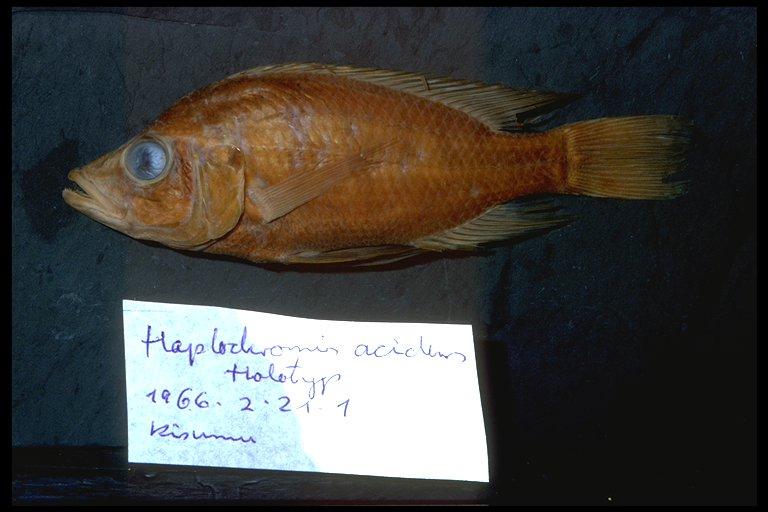 Haplochromis acidens
Holotyp
1966. 2. 21. 1
Kisumu